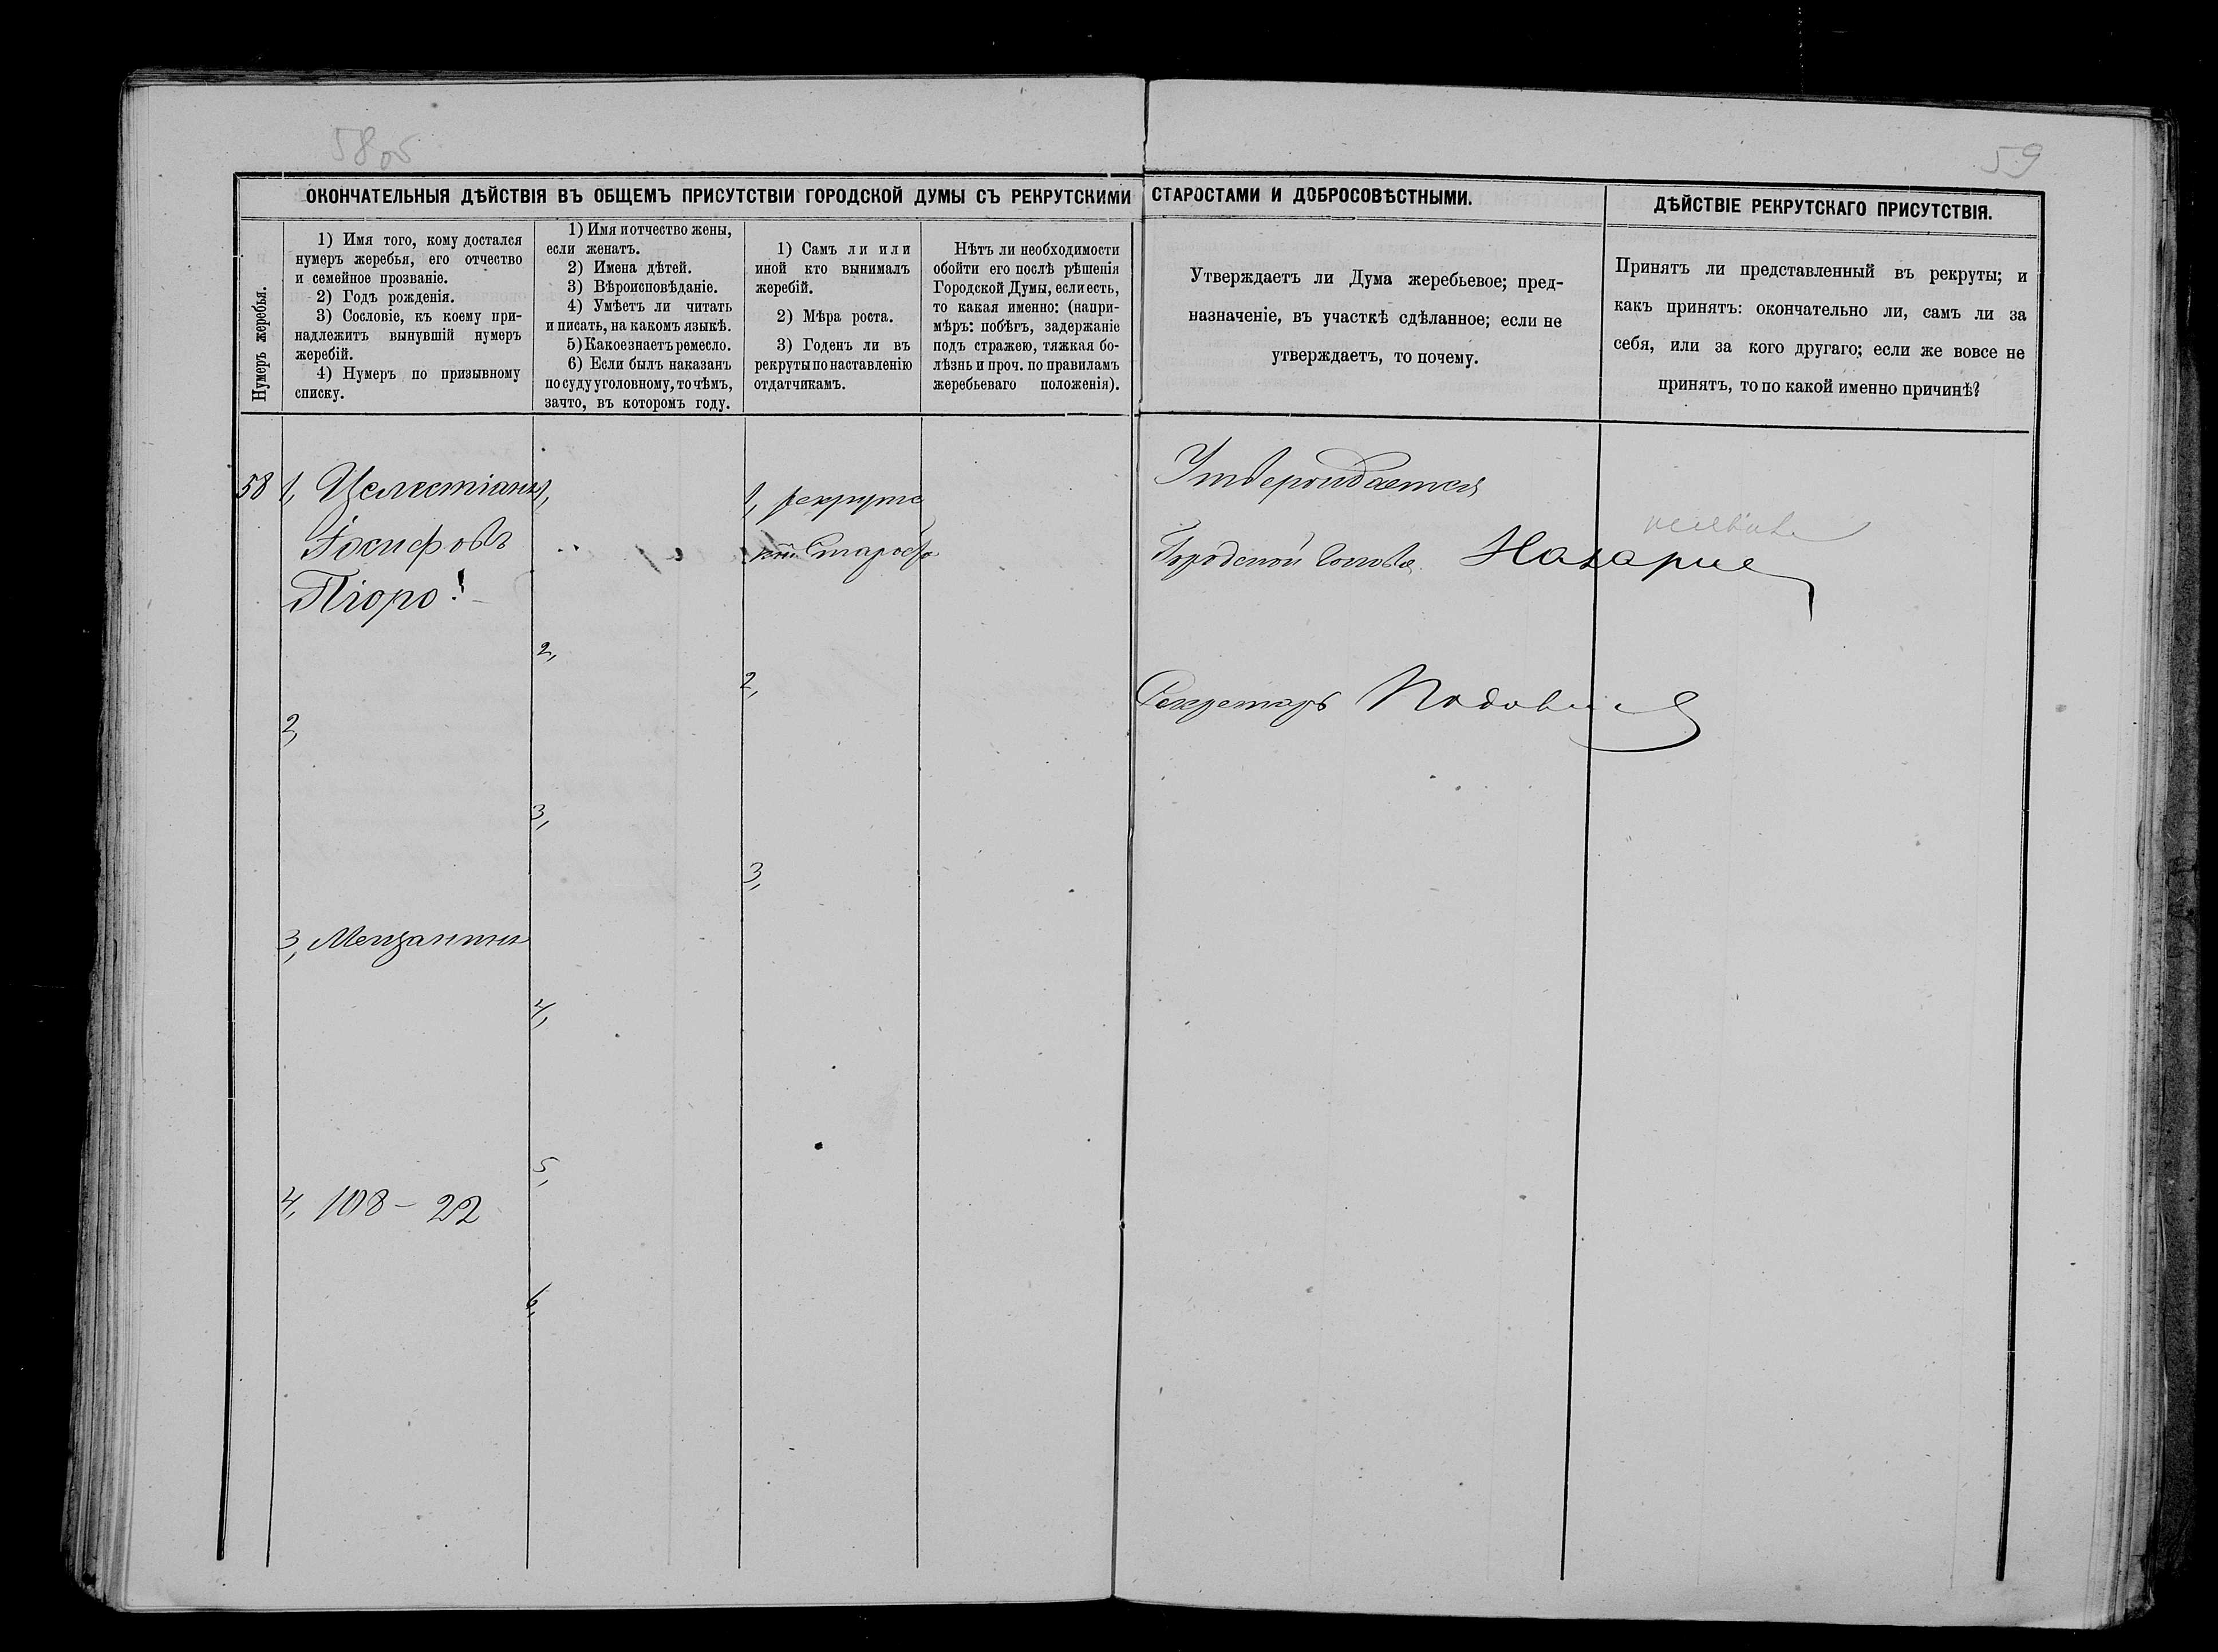 58об
59
ОКОНЧАТЕЛЬНЫЯ ДѢЙСТВІЯ ВЪ ОБЩЕМЪ ПРИСУТСТВІИ ГОРОДСКОЙ ДУМЫ СЪ РЕКРУТСКИМИ СТАРОСТАМИ И ДОБРОСОВѢСТНЫМИ.
ДѢЙСТВІЕ РЕКРУТСКАГО ПРИСУТСТВІЯ.
Нумеръ жеребья.
1) Имя того, кому достался
нумеръ жеребья, его отчество
и семейное прозваніе.
2) Годъ рожденія.
3) Сословіе, къ коему при-
надлежитъ вынувшій нумеръ
жеребій.
4) Нумеръ по призывному
списку.
1) Имя и отчество жены,
если женатъ.
2) Имена дѣтей.
3) Вѣроисповѣданіе.
4) Умѣетъ ли читать
и писать, на какомъ языкѣ.
5) Какое знаетъ ремесло.
6) Если былъ наказанъ
по суду уголовному, то чѣмъ,
за что, въ которомъ году.
1) Самъ ли или
иной кто вынималъ
жеребій.
2) Мѣра роста.
3) Годенъ ли въ
рекруты по наставленію
отдатчикамъ.
Нѣтъ ли необходимости
обойти его послѣ рѣшенія
Городской Думы, если есть,
то какая именно: (напри-
мѣръ: побѣгъ, задержаніе
подъ стражею, тяжкая бо-
лѣзнь и проч. по правиламъ
жеребьеваго положенія).
Утверждаетъ ли Дума жеребьевое; пред-
назначеніе, въ участкѣ сдѣланное; если не
утверждаетъ, то почему.
Принятъ ли представленный въ рекруты; и
какъ принятъ: окончательно ли, самъ ли за
себя, или за кого другаго; если же вовсе не
принятъ, то по какой именно причинѣ?
58
1, Целестіанъ
Іосифовъ
Піоро!
2,
3, Мещанинъ
4, 108 – 22
1,
2,
3,
4,
5,
6,
1, рекрутс
кій Староста
2,
3,
Утверждается
Городской Голова
Секретарь